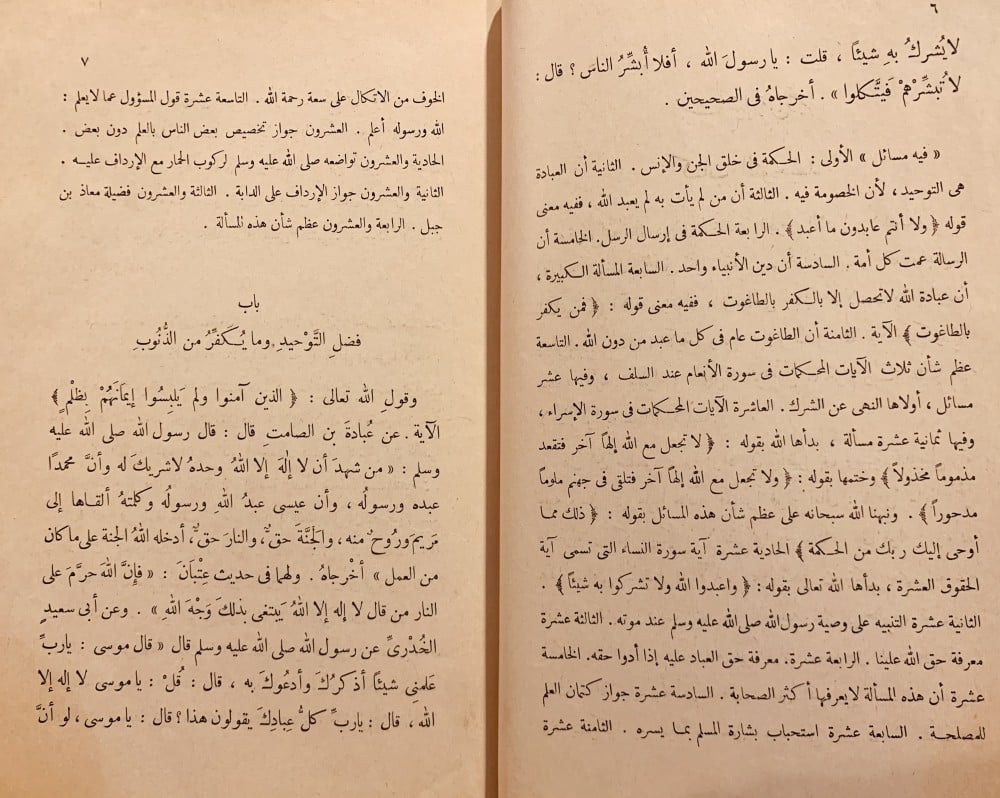 ٦
لا يُشركُ بهِ شيئًا ، قلت : يا رسولَ الله ، أفلا أُبشِّرُ الناسَ ؟ قال :
لا تُبشِّرْهمْ فَيتَّكلوا » . أخرجاهُ فى الصحيحين .
« فيه مسائل » الأولى : الحكمة فى خلق الجن والإنس . الثانية أن العبادة
هى التوحيد ، لأن الخصومة فيه . الثالثة أن من لم يأت به لم يعبد الله ، ففيه معنى
قوله ﴿ ولا أنتم عابدون ما أعبد ﴾ . الرابعة الحكمة فى إرسال الرسل . الخامسة أن
الرسالة عمت كل أمة . السادسة أن دين الأنبياء واحد . السابعة المسألة الكبيرة ،
أن عبادة الله لاتحصل إلا بالكفر بالطاغوت ، ففيه معنى قوله : ﴿ فمن يكفر
بالطاغوت ﴾ الآية . الثامنة أن الطاغوت عام فى كل ما عبد من دون الله . التاسعة
عظم شأن ثلاث الآيات المحكمات فى سورة الأنعام عند السلف ، وفيها عشر
مسائل ، أولاها النهى عن الشرك . العاشرة الآيات المحكمات فى سورة الإسراء ،
وفيها ثمانية عشرة مسألة ، بدأها الله بقوله : ﴿ لا تجعل مع الله إلهًا آخر فتقعد
مذموماً مخذولاً ﴾ وختمها بقوله : ﴿ ولا تجعل مع الله إلهًا آخر فتلقى فى جهنم ملوماً
مدحوراً ﴾ . ونبهنا الله سبحانه على عظم شأن هذه المسائل بقوله : ﴿ ذلك مما
أوحى إليك ربك من الحكمة ﴾ الحادية عشرة آية سورة النساء التى تسمى آية
الحقوق العشرة ، بدأها الله تعالى بقوله : ﴿ واعبدوا الله ولا تشركوا به شيئًا ﴾ .
الثانية عشرة التنبيه على وصية رسول الله صلى الله عليه وسلم عند موته . الثالثة عشرة
معرفة حق الله علينا . الرابعة عشرة . معرفة حق العباد عليه إذا أدوا حقه . الخامسة
عشرة أن هذه المسألة لايعرفها أكثر الصحابة . السادسة عشرة جواز كتمان العلم
للمصلحة . السابعة عشرة استحباب بشارة المسلم بما يسره . الثامنة عشرة
٧
الخوف من الاتكال على سعة رحمة الله . التاسعة عشرة قول المسؤول عما لايعلم :
الله ورسوله أعلم . العشرون جواز تخصيص بعض الناس بالعلم دون بعض .
الحادية والعشرون تواضعه صلى الله عليه وسلم لركوب الحمار مع الإرداف عليه .
الثانية والعشرون جواز الإرداف على الدابة . الثالثة والعشرون فضيلة معاذ بن
جبل . الرابعة والعشرون عظم شأن هذه المسألة .
باب
فضلِ التَّوْحيدِ وما يُكَفِّرُ من الذُّنُوبِ
وقولِ الله تعالى : ﴿ الذين آمنوا ولم يَلبِسُوا إيمَانَهُمْ بِظلْمٍ ﴾
الآية . عن عُبادةَ بن الصامتِ قال : قال رسول الله صلى الله عليه
وسلم : « من شهدَ أن لا إلَهَ إلا اللهُ وحدهُ لاشريكَ له وأنَّ محمدًا
عبده ورسولُه ، وأن عيسى عبدُ اللهِ ورسولُه وكلمتهُ ألقاها إلى
مَريمَ ورُوحٌ منه ، والجَنَّةَ حقٌّ ، والنارَ حقٌّ ، أدخله اللهُ الجنة على ما كان
من العمل » أخْرجاهُ . ولهما فى حديث عِتْبانَ : « فإنَّ اللهَ حرَّمَ على
النار من قال لا إله إلا اللهُ يَبتغى بذلكَ وَجْهَ اللهِ » . وعن أبى سعيدٍ
الخُدْرىِّ عن رسول الله صلى الله عليه وسلم قال « قال موسى : ياربِّ
عَلمنى شيئًا أذكرُكَ وأدعُوكَ به ، قال : قُلْ : يا موسى لا إله إلا
الله ، قال : ياربِّ كلُّ عِبادِكَ يقولون هذا ؟ قال : يا موسى ، لو أنَّ